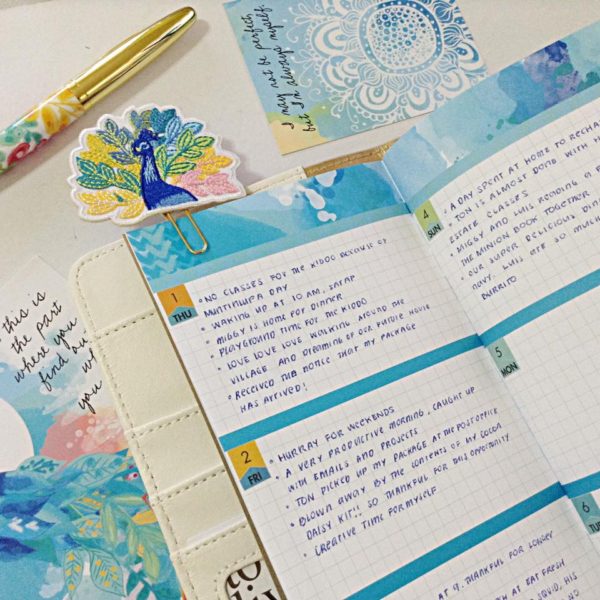 I may not be perfect
but I'm always myself.
this is
the part
where you
find ou
wh
you
1
THU
• NO CLASSES FOR THE KIDDO BECAUSE OF
MUNTINLUPA DAY
• WAKING UP AT 10 AM, SARAP
• MIGGY IS HOME FOR DINNER
• PLAYGROUND TIME FOR THE KIDDO
• LOVE LOVE LOVE WALKING AROUND THE
VILLAGE AND DREAMING OF OUR FUTURE HOUSE
• RECEIVED THE NOTICE THAT MY PACKAGE
HAS ARRIVED!
2
FRI
• HURRAY FOR WEEKENDS
• A VERY PRODUCTIVE MORNING, CAUGHT UP
WITH EMAILS AND PROJECTS
• TON PICKED UP MY PACKAGE AT THE POST OFFICE
• BLOWN AWAY BY THE CONTENTS OF MY COCOA
DAISY KIT!! SO THANKFUL FOR THIS OPPORTUNITY
• CREATIVE TIME FOR MYSELF
AT 9. THANKFUL FOR LONGER
AT EAT FRESH
SQUID, HIS
NO
4
SUN
A DAY SPENT AT HOME TO RECHA
• TON IS ALMOST DONE WITH H
ESTATE CLASSES
• MIGGY AND LUIS READING A
THE MINION BOOK TOGETHER
• OUR SUPER DELICIOUS DIN
LUIS ATE SO MUCH
BURRITO
5
MON
6
TUE
to